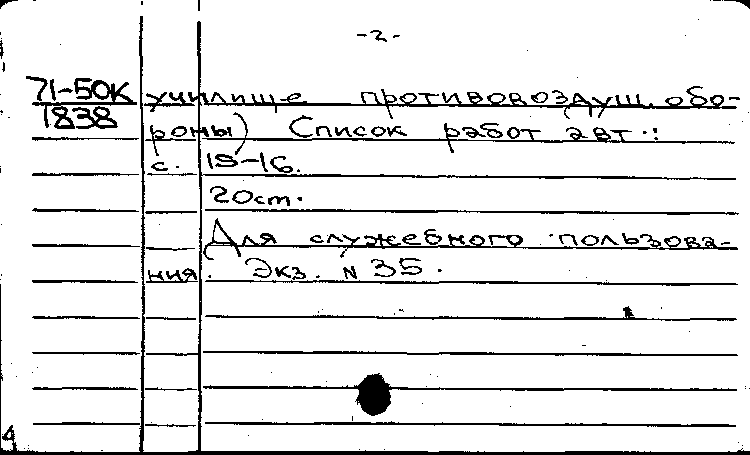 -2-
71-50К училище противовоздуш. обо-
1838 роны) Список работ авт.:
с. 15-16.
20 см.
Для служебного пользова-
ния. Экз. N 35.
4